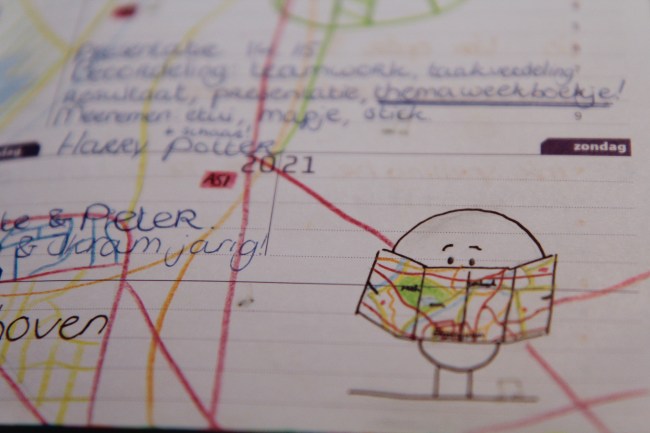 Presentatie 14 15
Beoordeling: teamwork, taakverdeling
Resultaat, presentatie, themaweekboekje!
Meenemen: etui, mapje, stick
Harry Potter
zondag
2021
A57
te & Peter.
& Ikram jarig!
hoven